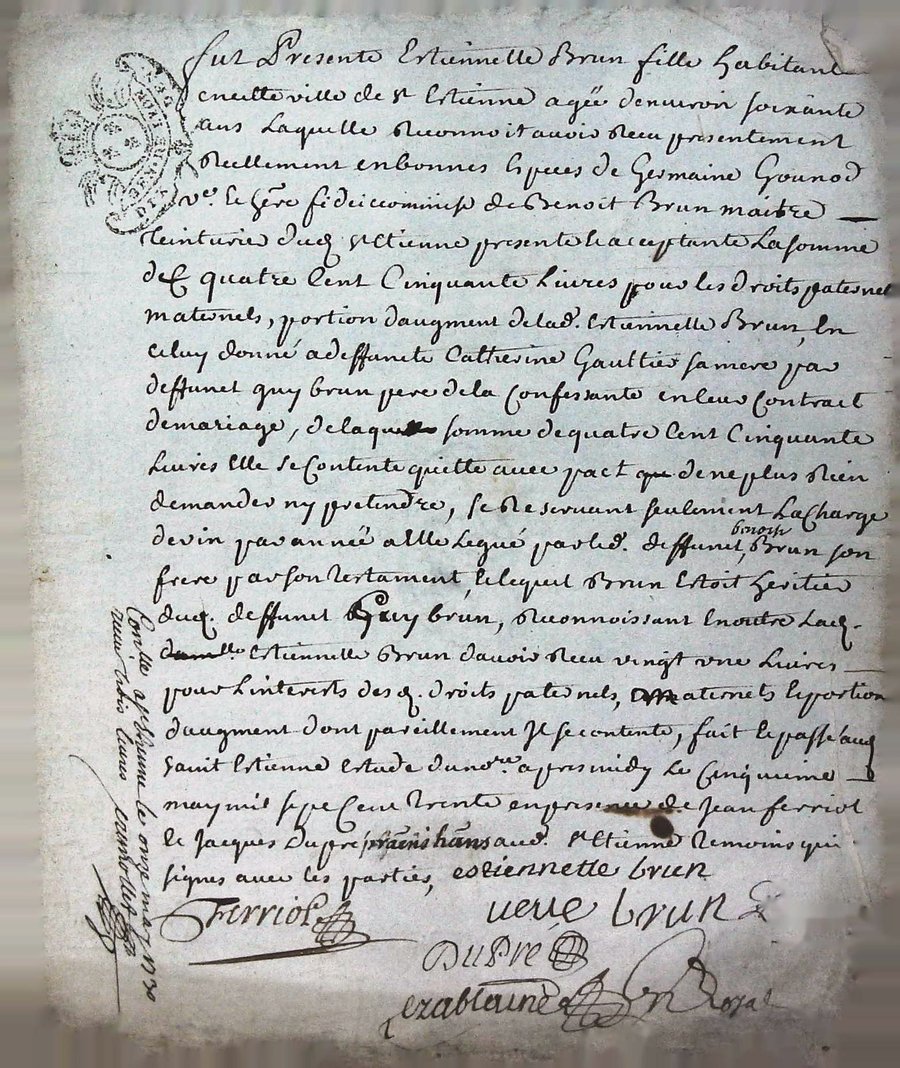 fut Presente Estiennette Brun fille habitant
en cette ville de st Estienne agée denviron soixante
ans Laquelle Reconnoit avoir Receu presentement
Reellement en bonnes Especes de Germaine Gounod
ve. et hère fideicommise de Benoit Brun maitre
teinturie dud st Etienne presente et acceptante La somme
de quatre Cent Cinquante Livres pour les droits paternel
maternels, portion daugment de lad. Estiennette Brun, En
celuy donné a deffuncte Catherine Gaultier sa mere par
deffunct guy brun pere de la Confessante en leur Contract
de mariage, de laque somme de quatre Cent Cinquante
Livres Elle se Contente quitte avec pact de ne plus Rien
demander ny pretendre, se Reservant seulement La Charge
de vin par année a Elle Legué par led. deffunct, benoist Brun son
frere par son testament, et lequel Brun Estoit heritier
dud. deffunct Guy brun, Reconnoissant En outre Lad.
Estiennette Brun davoir Receu vingt une Livres
pour L'interets des d. droits paternels, maternels et portion
daugment dont pareillement Il se contente, fait et passé aud
saint Estienne Estude du nore apres midy Le Cinquieme
may mil sept Cent trente en presence de Jean ferriol
et Jacques Dupré aud. st Etienne temoins qui
signes avec les parties, estiennette brun
Ferriol
veuve brun
DuPré
Royal
Conlle a st Etienne le onze may 1730
receu